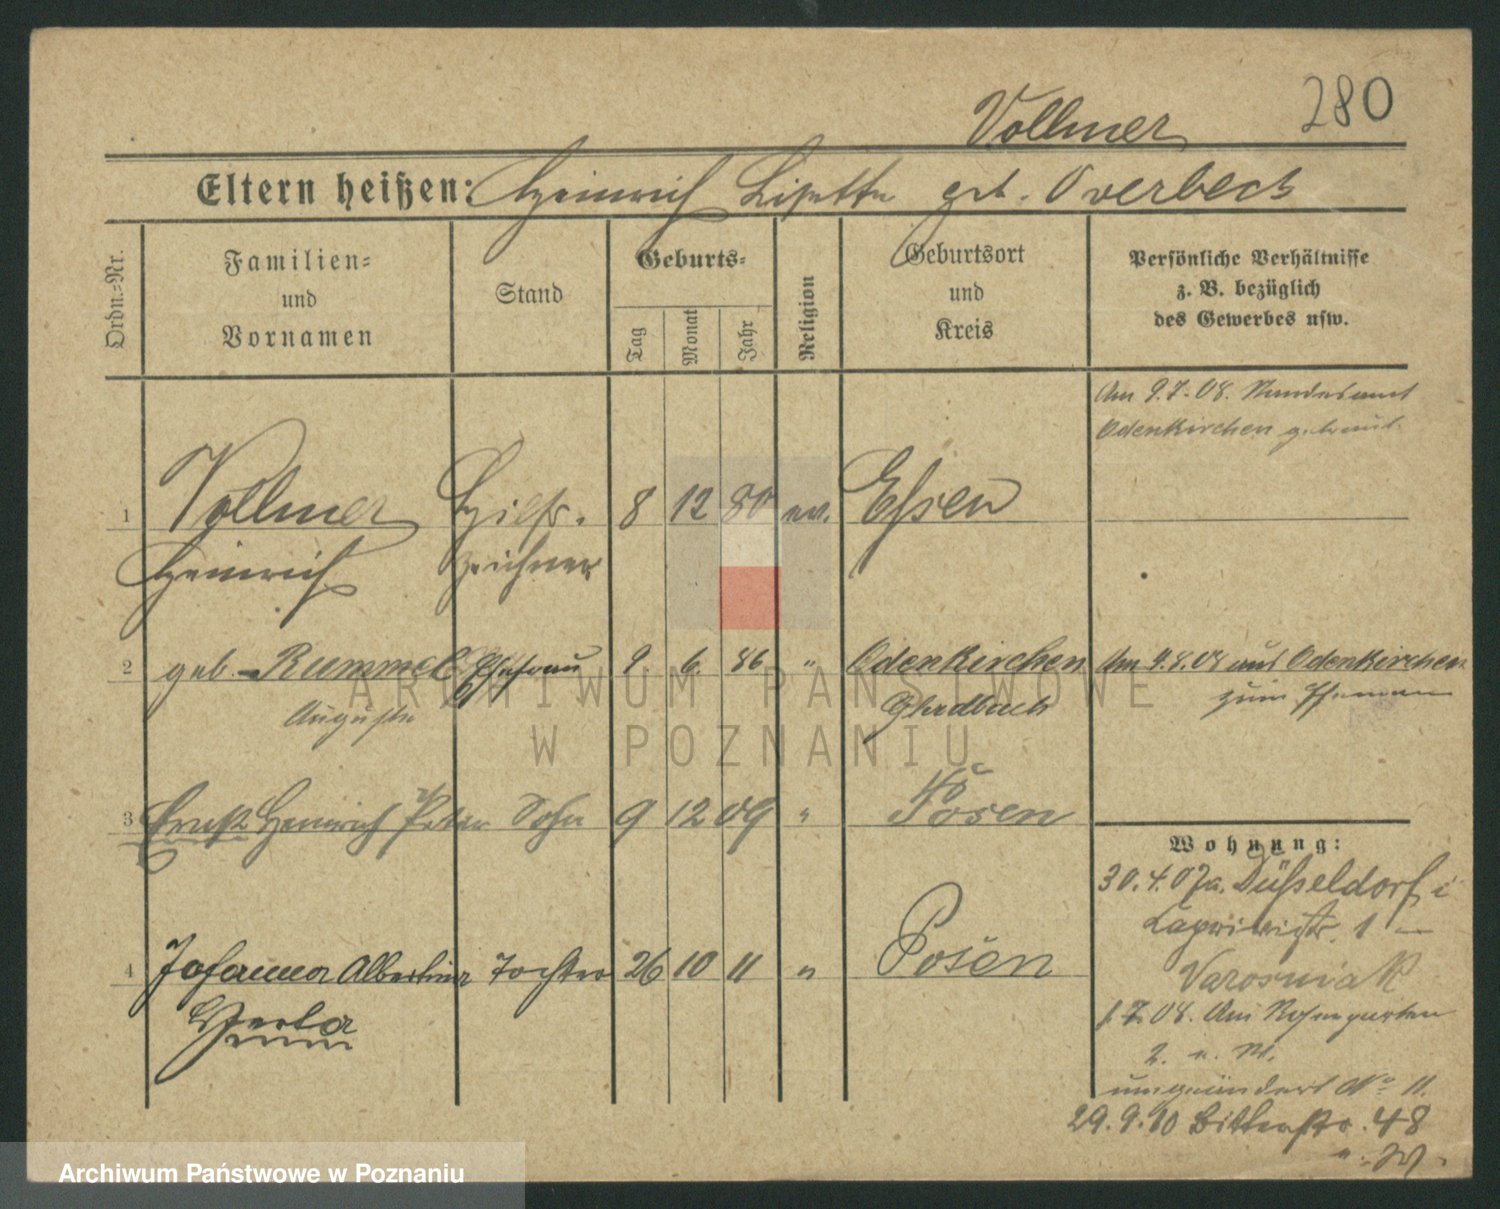 280
Vollmer
Eltern heißen: Heinrich Lisette geb. Overbeck
Ordn.-Nr.
Familien-
und
Vornamen
Stand
Geburts-
Tag
Monat
Jahr
Religion
Geburtsort
und
Kreis
Persönliche Verhältnisse
z. B. bezüglich
des Gewerbes usw.
Am 9.7.08. Standesamt
Odenkirchen getraut.
1 Vollmer Hilfs- 8 12 80 ev. Essen
Heinrich zeichner
2 geb. Rummel Ehefrau 9 6. 86 " Odenkirchen Am 4.8.08 aus Odenkirchen
Auguste Gladbach zum Ehemann
3 Ernst Heinrich Peter Sohn 9 12 09 " Posen
Wohnung:
30.4.07 a. Düsseldorf
1
4 Johanna Albertine Tochter 26 10 11 " Posen
Herta
1.7.08. Am Rosengarten
2. u. W.
umgeändert No 11.
29.9.10 Bitterstr. 48
u. W.
ARCHIWUM PAŃSTWOWE
W POZNANIU
Archiwum Państwowe w Poznaniu